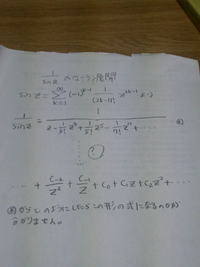 1/sin z のローラン展開
sin z = Σ_{k=1}^{∞} (-1)^{k-1} 1/(2k-1)! z^{2k-1} より
1/sin z = 1/(z - 1/3! z^3 + 1/5! z^5 - 1/7! z^7 + ……) ④
?
…… + C_{-2}/z^2 + C_{-1}/z + C_0 + C_1 z + C_2 z^2 + ……
④から このように
この形の式になるのかが
わかりません。